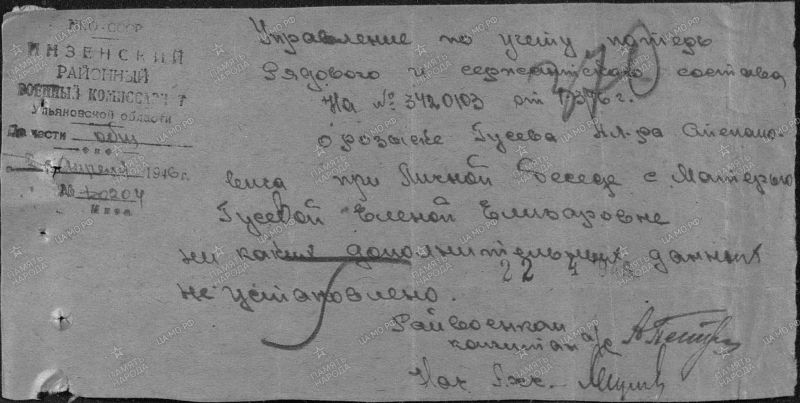 НКО-СССР
ИНЗЕНСКИЙ
РАЙОННЫЙ
ВОЕННЫЙ КОМИССАРИАТ
Ульяновской области
По части общ
Апреля 1946 г.
№
Инза
Управление по учету потерь
рядового и сержантского состава
На № 3420103 от
о розыске Гусева Ал-ра Степано
вича при личной беседе с матерью
Гусевой Еленой Елизаровне
ни каких дополнительных данных
не установлено.
22 4
Райвоенком
капитан а/с
Нач